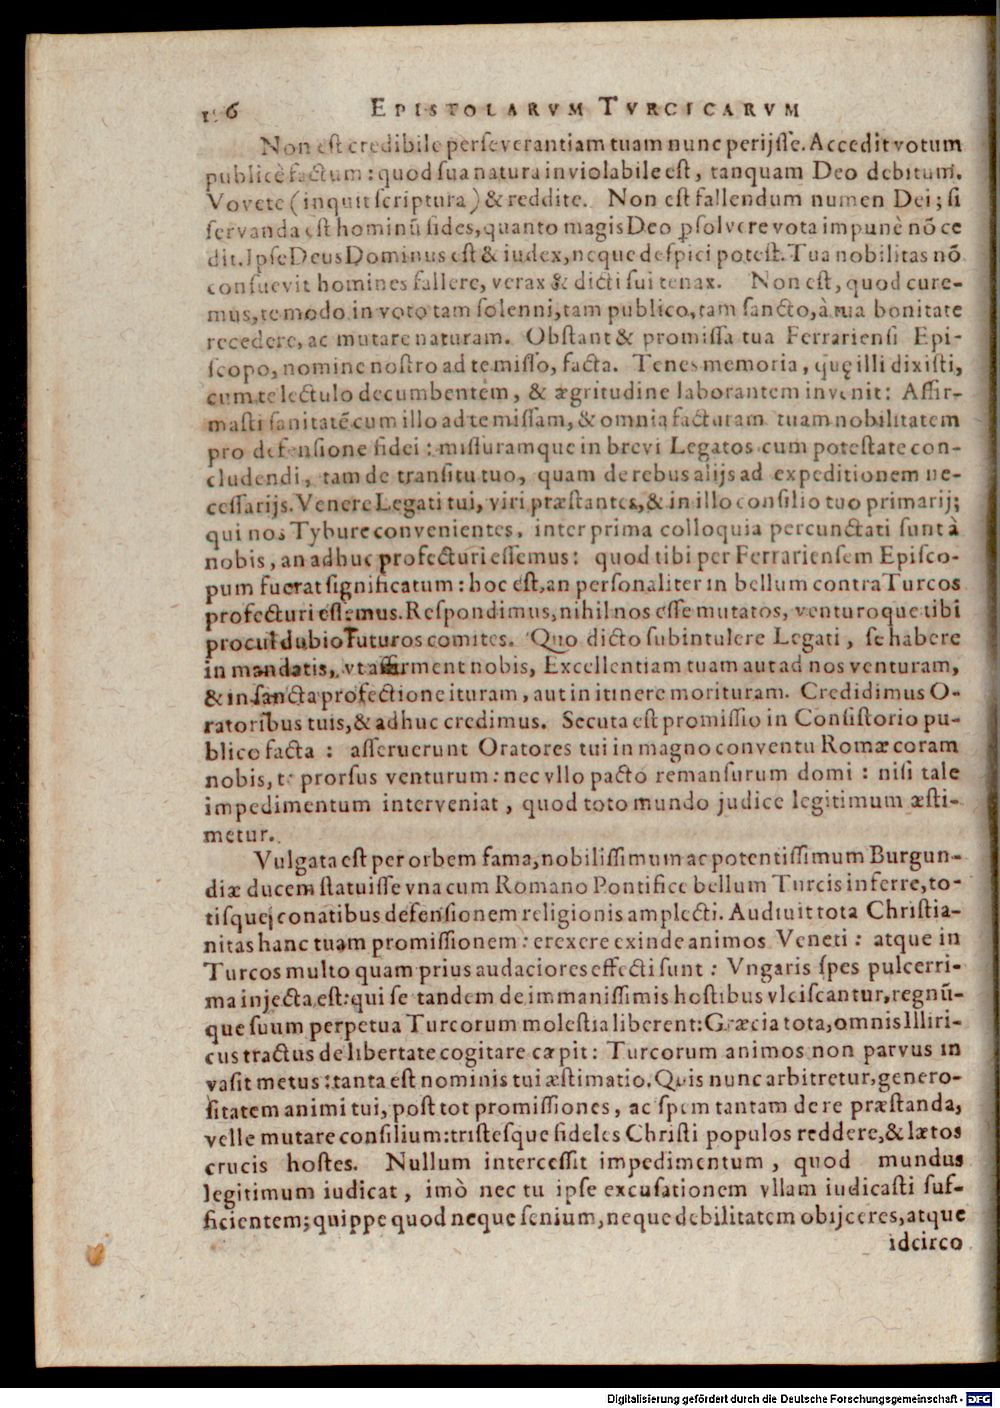 6 EPISTOLARVM TVRCICARVM
Non est credibile perseverantiam tuam nunc perijsse. Accedit votum
publicè factum: quod sua natura inviolabile est, tanquam Deo debitum.
Vovete (inquit scriptura) & reddite. Non est fallendum numen Dei; si
servanda est hominū fides, quanto magis Deo ꝑsolvere vota impunè nō ce
dit. Ipse Deus Dominus est & iudex, neque despici potest. Tua nobilitas nō
consuevit homines fallere, verax & dicti sui tenax. Non est, quod cure-
mus, te modo in voto tam solenni, tam publico, tam sancto, à tua bonitate
recedere, ac mutare naturam. Obstant & promissa tua Ferrariensi Epi-
scopo, nomine nostro ad te misso, facta. Tenes memoria, quę illi dixisti,
cum te lectulo decumbentem, & ægritudine laborantem invenit: Affir-
masti sanitatē cum illo ad te missam, & omnia facturam tuam nobilitatem
pro defensione fidei: missuramque in brevi Legatos cum potestate con-
cludendi, tam de transitu tuo, quam de rebus alijs ad expeditionem ne-
cessarijs. Venere Legati tui, viri præstantes, & in illo consilio tuo primarij;
qui nos Tybure convenientes, inter prima colloquia percunctati sunt à
nobis, an adhuc profecturi essemus: quod tibi per Ferrariensem Episco-
pum fuerat significatum: hoc est, an personaliter in bellum contra Turcos
profecturi essemus. Respondimus, nihil nos esse mutatos, venturoque tibi
procul dubio futuros comites. Quo dicto subintulere Legati, se habere
in mandatis, vt affirment nobis, Excellentiam tuam aut ad nos venturam,
& in sancta profectione ituram, aut in itinere morituram. Credidimus O-
ratoribus tuis, & adhuc credimus. Secuta est promissio in Consistorio pu-
blico facta: asseruerunt Oratores tui in magno conventu Romæ coram
nobis, te prorsus venturum: nec vllo pacto remansurum domi: nisi tale
impedimentum interveniat, quod toto mundo judice legitimum æsti-
metur.
Vulgata est per orbem fama, nobilissimum ac potentissimum Burgun-
diæ ducem statuisse vna cum Romano Pontifice bellum Turcis inferre, to-
tisque conatibus defensionem religionis amplecti. Audiuit tota Christia-
nitas hanc tuam promissionem: erexere exinde animos Veneti: atque in
Turcos multo quam prius audaciores effecti sunt: Vngaris spes pulcerri-
ma injecta est: qui se tandem de immanissimis hostibus vlciscantur, regnū-
que suum perpetua Turcorum molestia liberent: Græcia tota, omnis Illiri-
cus tractus de libertate cogitare cæpit: Turcorum animos non parvus in
vasit metus: tanta est nominis tui æstimatio. Quis nunc arbitretur, genero-
sitatem animi tui, post tot promissiones, ac spem tantam de re præstanda,
velle mutare consilium: tristesque fideles Christi populos reddere, & lætos
crucis hostes. Nullum intercessit impedimentum, quod mundus
legitimum iudicat, imò nec tu ipse excusationem vllam iudicasti suf-
ficientem; quippe quod neque senium, neque debilitatem obijceres, atque
idcirco
Digitalisierung gefördert durch die Deutsche Forschungsgemeinschaft - DFG